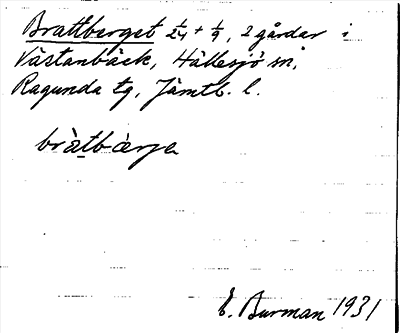 Brattberget 2/4 + 1/9, 2 gårdar i
Västanbäck, Hällesjö sn,
Ragunda tg, Jämtl. l.
bràtbær̀je
E. Burman 1931